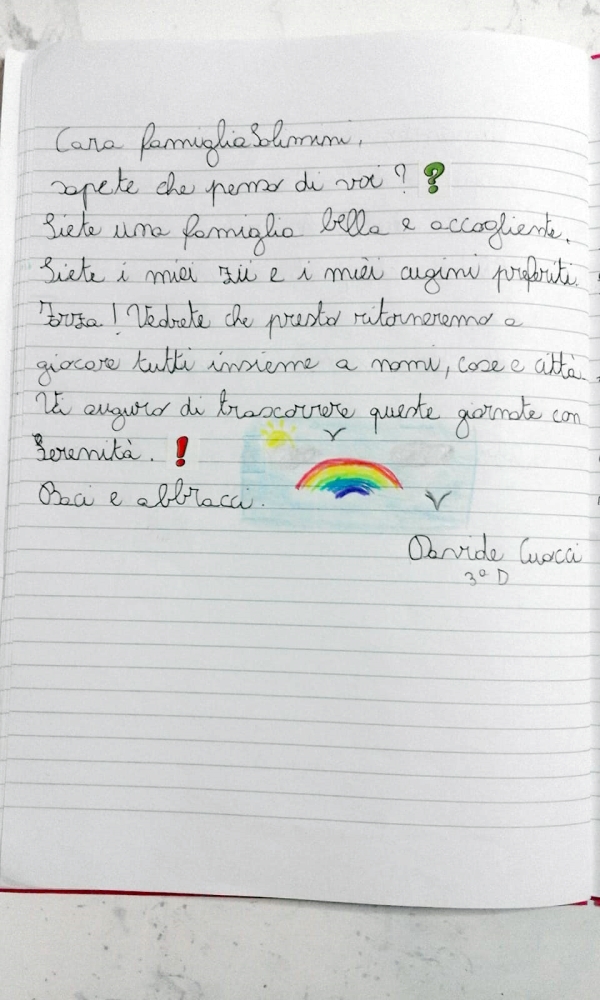 Cara famiglia Solimini,
sapete che penso di voi ? ❓
Siete una famiglia bella e accogliente.
Siete i miei zii e i miei cugini preferiti.
Forza! Vedrete che presto ritorneremo a
giocare tutti insieme a nomi, cose e città.
Vi auguro di trascorrere queste giornate con
serenità. ❗
Baci e abbracci.
Davide Cuocci
3ª D